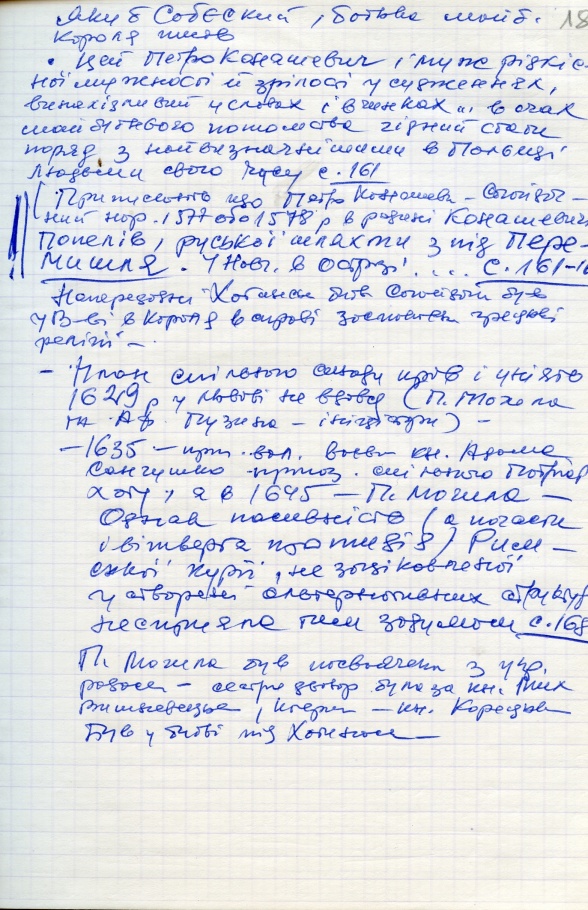 Якуб Собєский, батько майб. 18
короля писав
• Цей Петро Конашевич і муж рідкіс-
ної мужності й зрілості у судженнях,
винахідливий у словах і вчинках ... в очах
майбутнього потомства гідний стати
поряд з найвизначнішими в Польщі
людьми свого часу с. 161
Припускають що Петро Конашевич – Сагайдач-
ний нар. 1577 або 1578 р в родині Конашевич
Попелів, руської шляхти з під Пере-
мишля. Навч. в Острозі .... с. 161-1
Напередодні Хотинської битв Сагайдачн був
у В-ві в короля в справі грецької
релігії –
– План спільного синоду прав і уніатів
1629 р у Львові не вдався (П. Могила
та Аф. Пузина – ініціатори) –
– 1635 – при вол. воєв кн. Адама
Сангушко спільного Патріар
хату, а в 1645 – П. Могила –
Однак пасивність (а почасти
і відверта протидія) Римсь-
кої курії, не зацікавленої
у створенні альтернативних структур
не сприяла тим задумам с. 168
П. Могила був посвоячени з укр.
родами – сестра була за кн. Мих
Вишневецьк, – кн. Корецьк
Був у битві під Хотином –